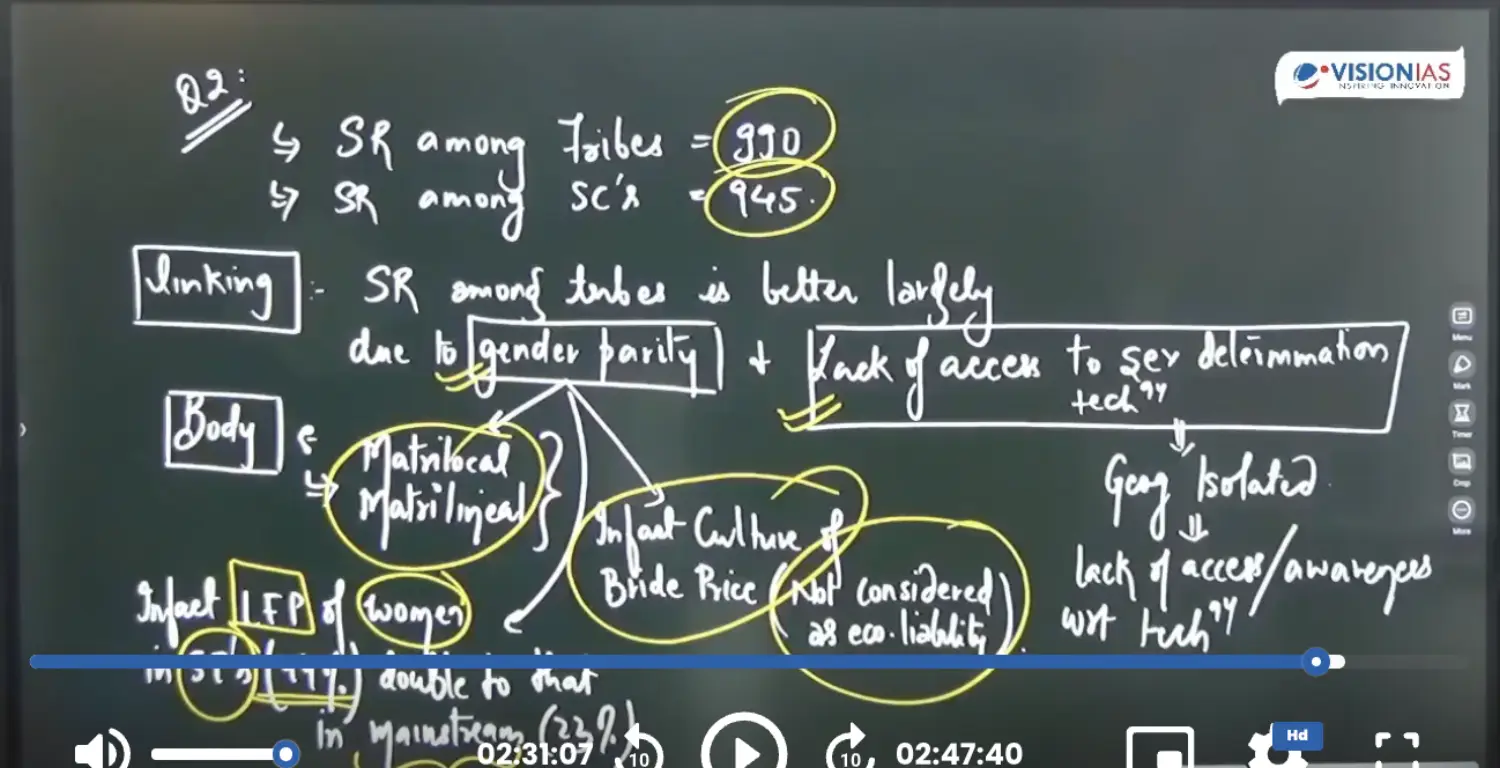 VISIONIAS
INSPIRING INNOVATION
Q2:
↳ SR among Tribes = 990
↳ SR among SC's = 945.
linking :- SR among tribes is better largely
due to gender parity + Lack of access to sex determination
techgy
Body
Matrilocal
Matrilineal
Infact Culture of
Bride Price (Not considered
as eco. liability)
Geog Isolated
lack of access/awareness
wrt techgy
Infact LFP of women
in ST's (44%) double to that
in mainstream (23%)
Menu
Mark
Timer
Crop
More
Hd
02:31:07
10
10
02:47:40